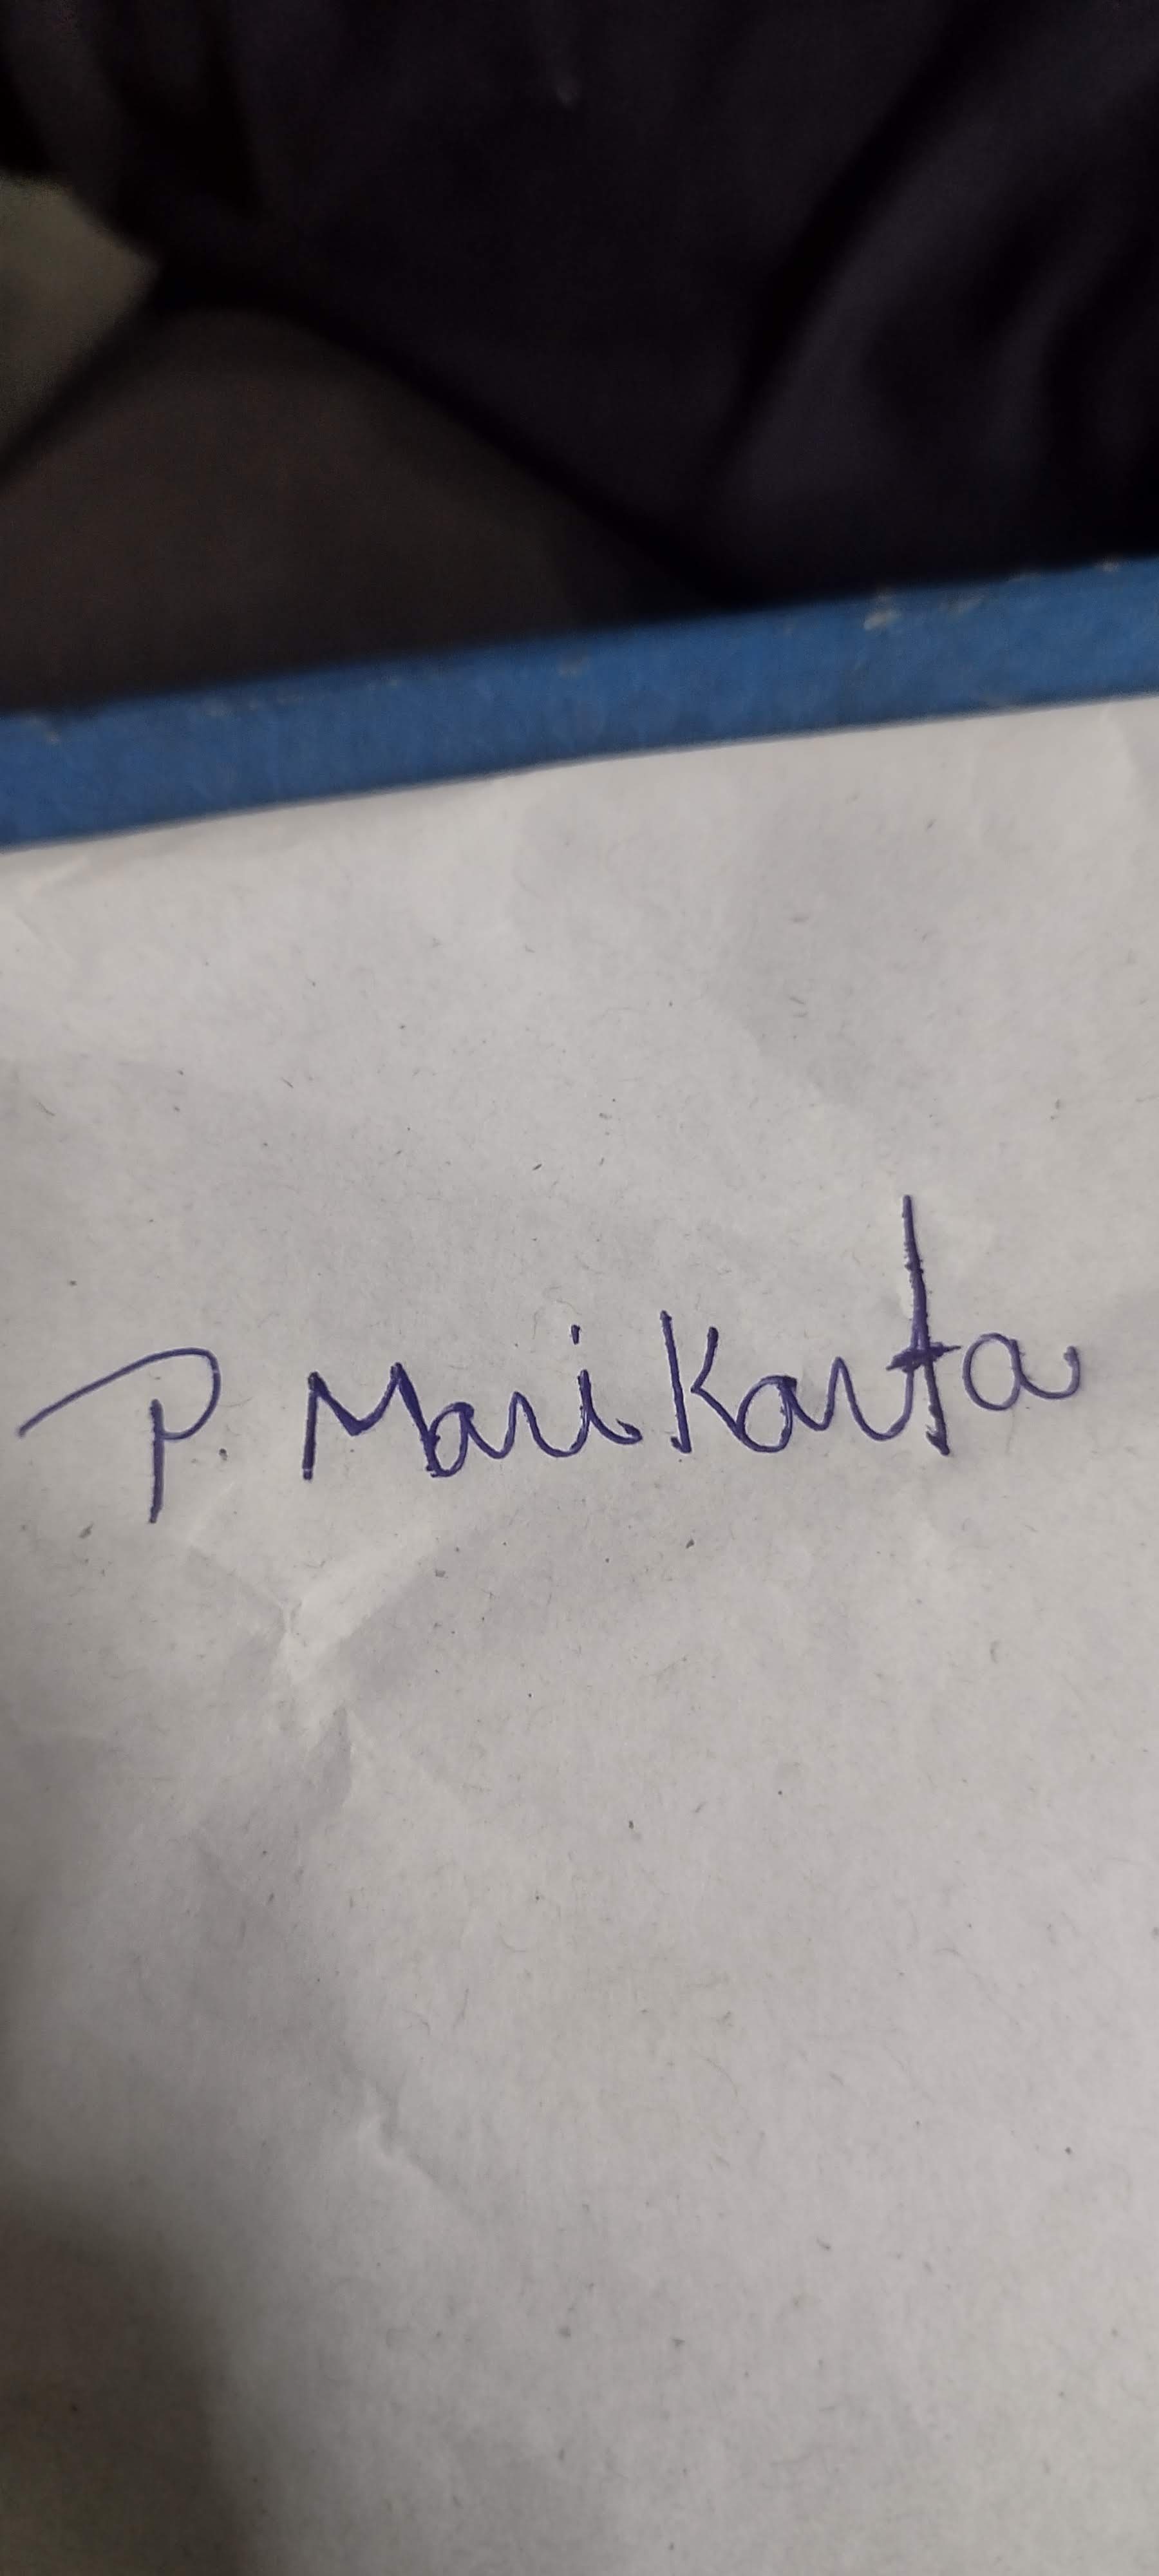 P. Mari Karta